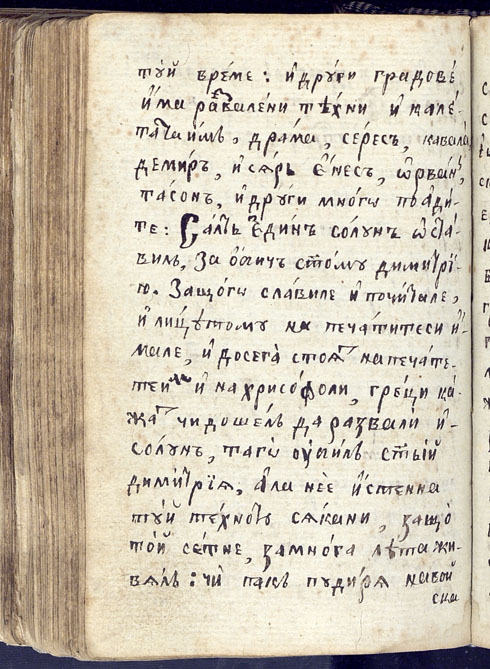 тꙋй време: и други градове
има развалени техни и кале-
татаимъ, драма, сересъ, кавала
демиръ, исаръ енесъ, ѡрванъ,
тасонъ, и други многѡ поади-
те: Самъ единъ солунъ ѡста-
вилъ, за ѹбичъ ст҃ому димитрї-
ю. Защогѡ славиле и почитале,
и лицѣтому на печатитеси и-
мале, и досега стоѧтъ напечате-
теимъ и нахрисоѳоли, грещи ка-
жатъ чидошелъ даразвали и
солунъ, тагѡ ѹбилъ ст҃ый
димитрїѧ, ала нее истенна
тꙋй техното сѧкани, защо
той сетне, замнога лѣта жи-
вѧлъ: чи пакъ пудирѧ навой
ска